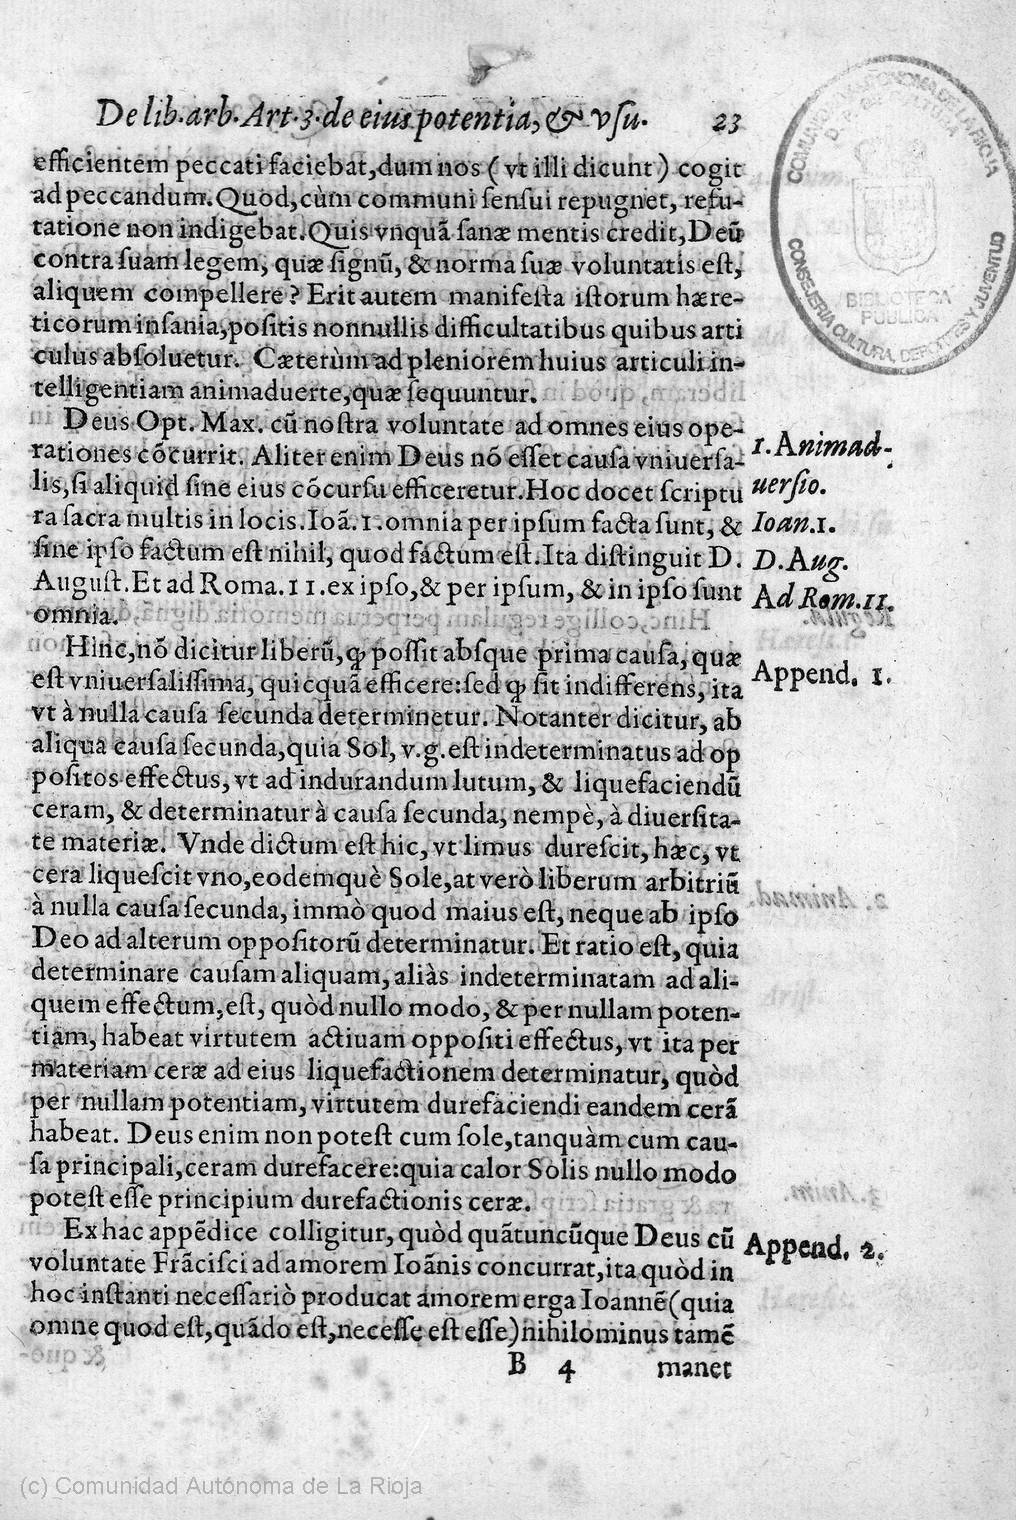 De lib. arb. Art. 3. de eius potentia, & vsu. 23
efficientem peccati faciebat, dum nos ( vt illi dicunt ) cogit
ad peccandum. Quod, cùm communi sensui repugnet, refu-
tatione non indigebat. Quis vnquã sanæ mentis credit, Deũ
contra suam legem, quæ signũ, & norma suæ voluntatis est,
aliquem compellere? Erit autem manifesta istorum hære-
ticorum insania, positis nonnullis difficultatibus quibus arti
culus absoluetur. Cæterùm ad pleniorem huius articuli in-
telligentiam animaduerte, quæ sequuntur.
Deus Opt. Max. cũ nostra voluntate ad omnes eius ope-
rationes cõcurrit. Aliter enim Deus nõ esset causa vniuersa-
lis, si aliquid sine eius cõcursu efficeretur. Hoc docet scriptu
ra sacra multis in locis. Ioã. 1. omnia per ipsum facta sunt, &
sine ipso factum est nihil, quod factum est. Ita distinguit D.
August. Et ad Roma. 11. ex ipso, & per ipsum, & in ipso sunt
omnia.
1. Animad-
uersio.
Ioan. 1.
D. Aug.
Ad Rom. 11.
Hinc, nõ dicitur liberũ, ꝙ possit absque prima causa, quæ
est vniuersalissima, quicquã efficere: sed ꝙ sit indifferens, ita
vt à nulla causa secunda determinetur. Notanter dicitur, ab
aliqua causa secunda, quia Sol, v.g. est indeterminatus ad op
positos effectus, vt ad indurandum lutum, & liquefaciendũ
ceram, & determinatur à causa secunda, nempè, à diuersita-
te materiæ. Vnde dictum est hic, vt limus durescit, hæc, vt
cera liquescit vno, eodemquè Sole, at verò liberum arbitriũ
à nulla causa secunda, immò quod maius est, neque ab ipso
Deo ad alterum oppositorũ determinatur. Et ratio est, quia
determinare causam aliquam, aliàs indeterminatam ad ali-
quem effectum, est, quòd nullo modo, & per nullam poten-
tiam, habeat virtutem actiuam oppositi effectus, vt ita per
materiam ceræ ad eius liquefactionem determinatur, quòd
per nullam potentiam, virtutem durefaciendi eandem cerã
habeat. Deus enim non potest cum sole, tanquàm cum cau-
sa principali, ceram durefacere: quia calor Solis nullo modo
potest esse principium durefactionis ceræ.
Append. 1.
Ex hac appẽdice colligitur, quòd quãtuncũque Deus cũ
voluntate Frãcisci ad amorem Ioãnis concurrat, ita quòd in
hoc instanti necessariò producat amorem erga Ioannẽ (quia
omne quod est, quãdo est, necesse est esse) nihilominus tamẽ
Append. 2.
B 4 manet
COMUNIDAD AUTONOMA DE LA RIOJA
BIBLIOTECA
PUBLICA
CONSEJERIA CULTURA, DEPORTES Y JUVENTUD
(c) Comunidad Autónoma de La Rioja